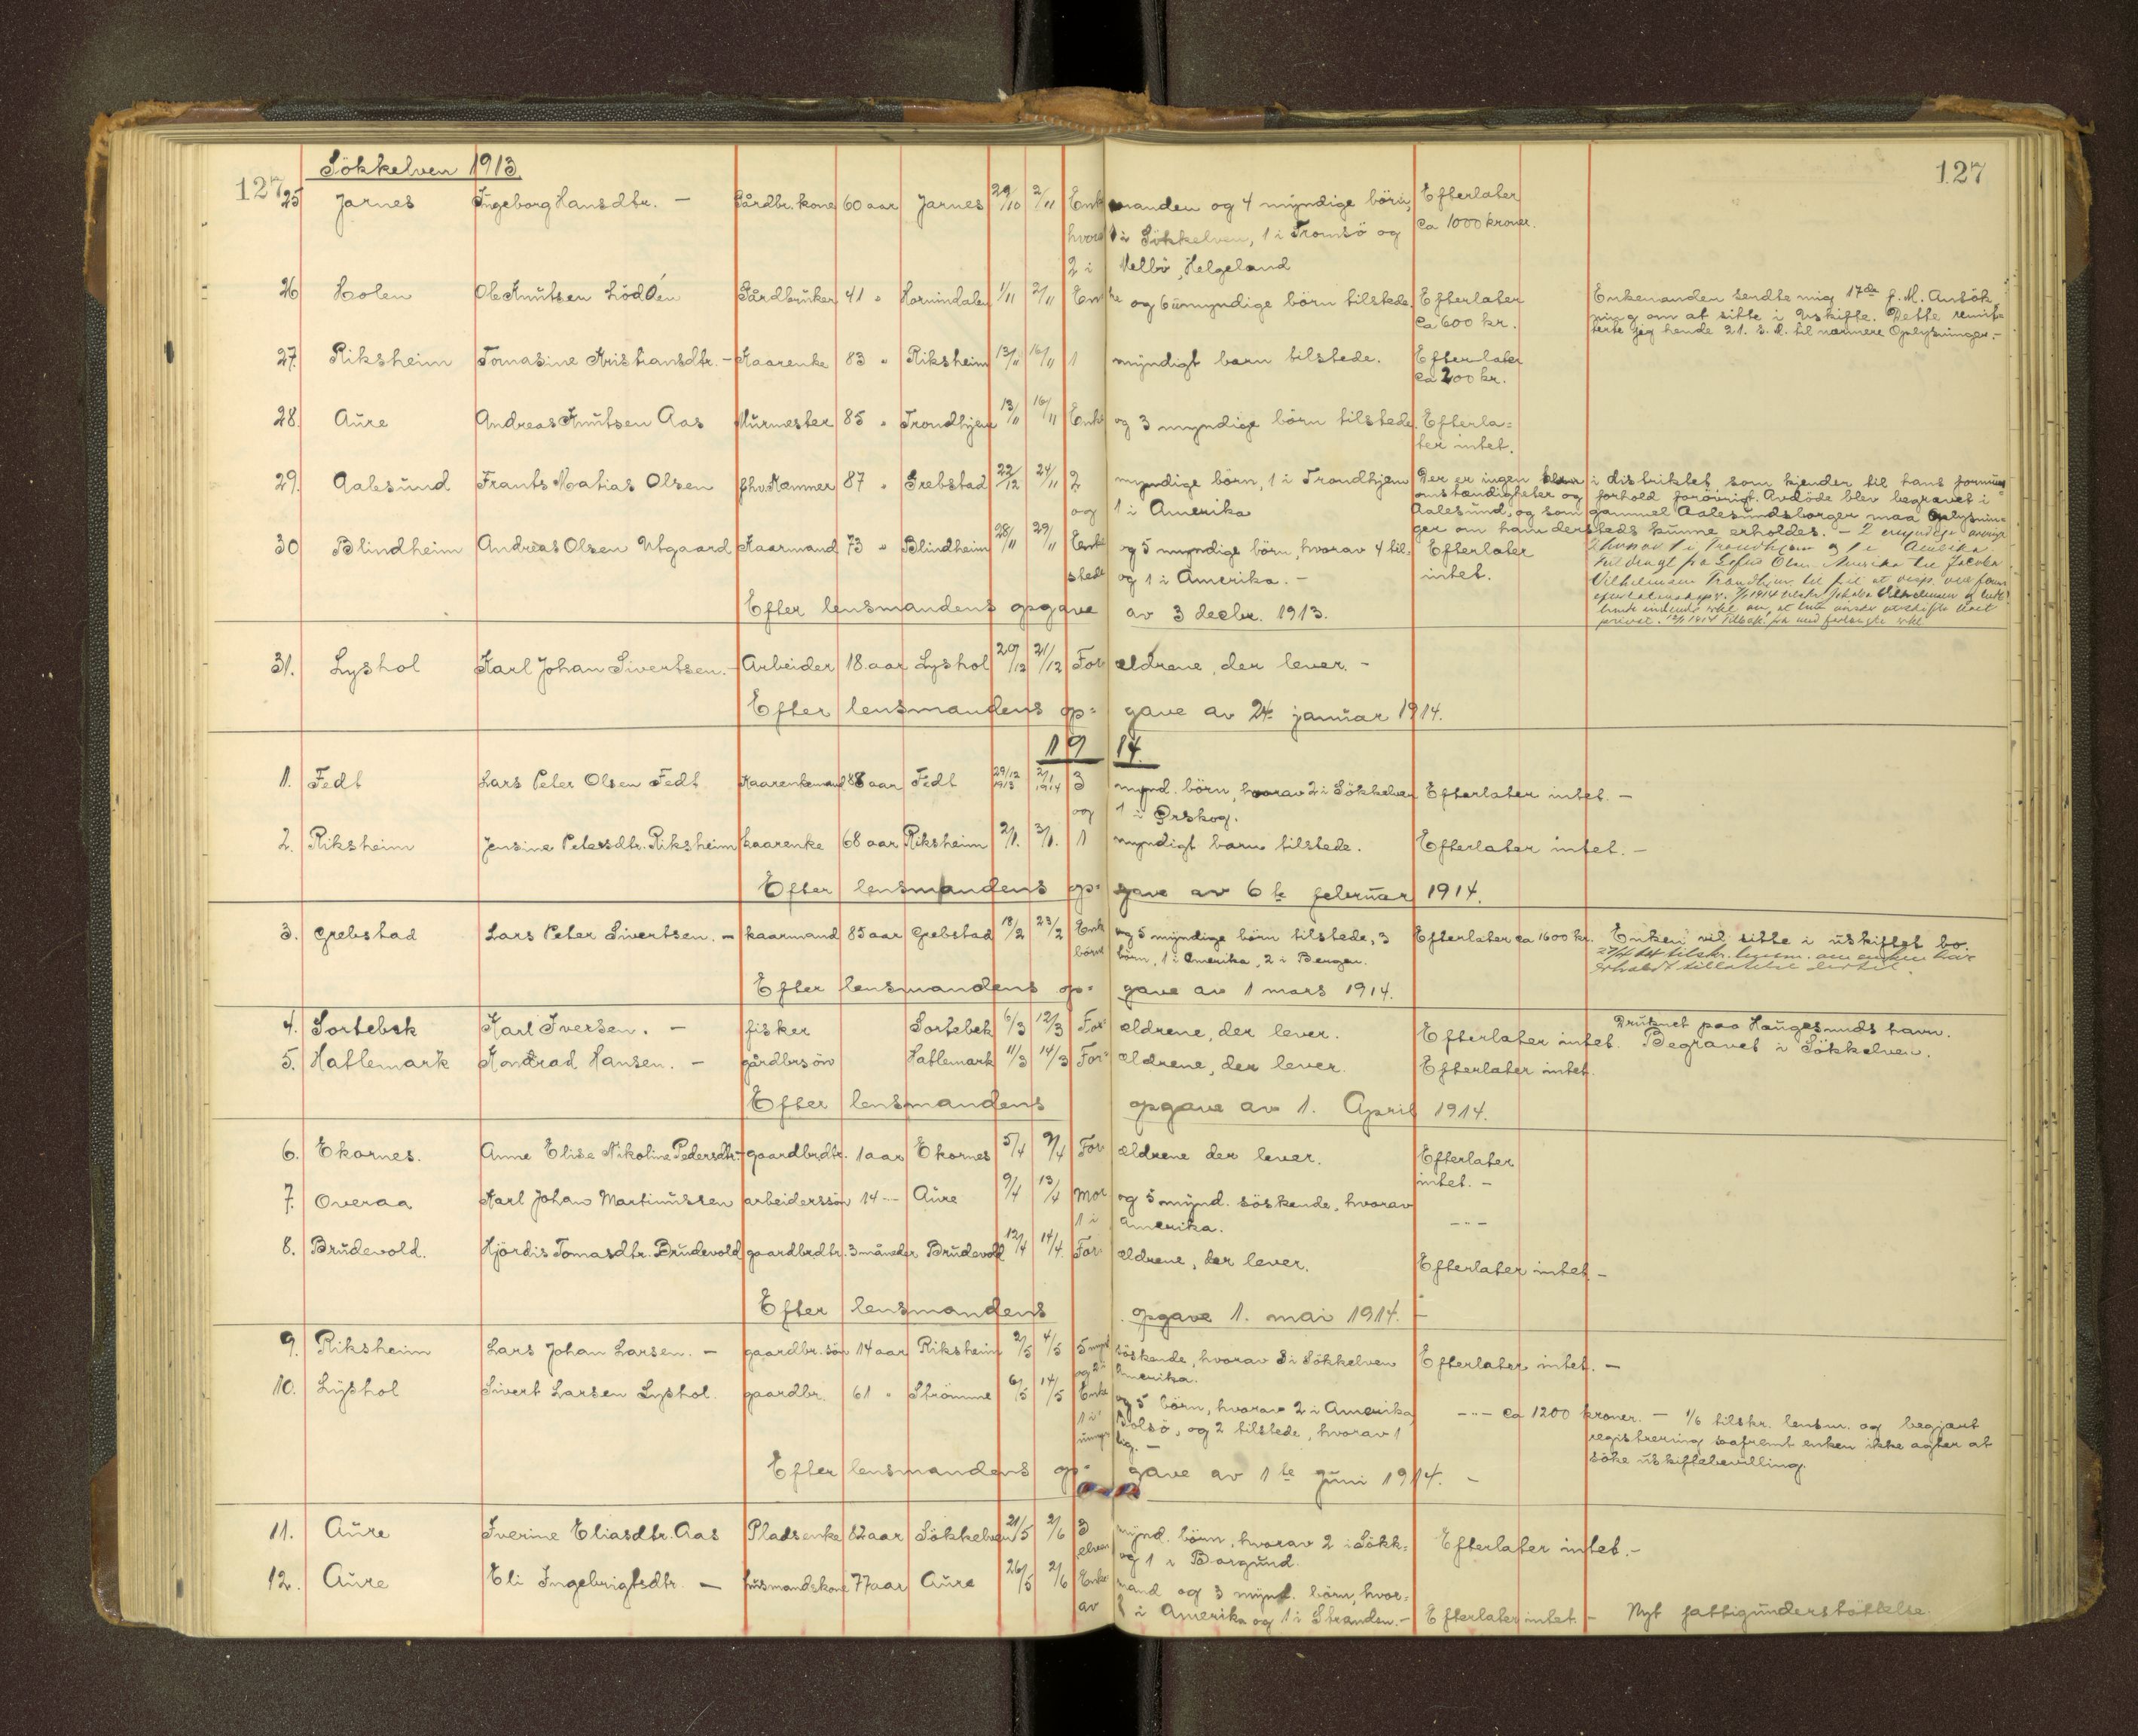 127 Sökkelven 1913 127
25 Jarnes Ingeborg Hansdtr. — Gårdbr. kone 60 aar Jarnes 29/10 2/11 Enkemanden og 4 myndige börn, Efterlater
hvorav 1 i Sökkelven, 1 i Tromsö og ca 1000 kroner.
2 i Melbö, Helgeland
26 Holen Ole Knutsen Löd Gårdbruker 41 " Hornindalen 1/11 2/11 Enke og 6 umyndige börn tilstede. Efterlater Enkemanden sendte mig 17de f. M. Ansök
ca 600 kr. ning om at sitte i Uskifte. Dette remit=
terte jeg hende 21. s. d. til nærmere Oplysninger.—
27. Riksheim Tomasine Kristiansdtr. — Kaarenke 83 " Riksheim 13/11 16/11 1 myndigt barn tilstede. Efterlater
ca 200 kr.
28. Aure Andreas Knutsen Aas Murmester 85 " Trondhjem 13/11 16/11 Enke og 3 myndige börn tilstede. Efterla=
ter intet.
29. Aalesund Frants Matias Olsen fhv. Kammer 87 " Grebstad 22/12 24/11 2 myndige börn, 1 i Trondhjem Der er ingen i distriktet som kjender til hans formues
og 1 i Amerika omstændigheter og forhold forövrigt. Avdöde blev begravet i
Aalesund, og som gammel Aalesundsborger maa Oplysnin=
ger om ham dersteds kunne erholdes. — 2 myndige
30 Blindheim Andreas Olsen Utgaard Kaarmand 73 " Blindheim 28/11 29/11 Enke og 5 myndige börn, hvorav 4 til= Efterlater hvorav 1 i Trondhjem og 1 i Amerika.
stede og 1 i Amerika. — intet. fra Olsen Amerika til Jacoba
Vilhelmsen Trondhjem
Efter lensmandens opgave av 3 decbr. 1913.
31. Lyshol Karl Johan Sivertsen. — Arbeider 18 aar Lyshol 20/12 21/12 Forældrene, der lever. —
Efter lensmandens op= gave av 24 januar 1914.
1914
1. Fedt Lars Peter Olsen Fedt Kaarenkemand 88 aar Fedt 29/12 1913 2/1 1914 3 mynd. börn, hvorav 2 i Sökkelven Efterlater intet. —
og 1 i Ørskog.
2. Riksheim Jensine Petersdtr. Riksheim kaarenke 68 aar Riksheim 2/1. 3/1. 1 myndigt barn tilstede. Efterlater intet. —
Efter lensmandens op= gave av 6te februar 1914.
3. Grebstad Lars Peter Sivertsen. — kaarmand 85 aar Grebstad 18/2 23/2 Enke og 5 myndige börn tilstede, 3 Efterlater ca 1600 kr. Enken vil sitte i uskiftet bo.
börn, 1 i Amerika, 2 i Bergen. 27/4 14 tilskr. lensm. om enken har
erholdt tillatelse dertil.
Efter lensmandens op= gave av 1 mars 1914.
4. Sortebek Karl Iversen. — fisker Sortebek 6/3 12/3 Forældrene, der lever. Efterlater intet. Druknet paa Haugesunds havn.
Begravet i Sökkelven.
5. Hatlemark Kondrad Hansen. — gårdbrsön Hatlemark 11/3 14/3 Forældrene, der lever. Efterlater intet.
Efter lensmandens opgave av 1. April 1914.
6. Ekornes. Anne Elise Nikoline Pedersdtr. — gaardbrdtr. 1 aar Ekornes 5/4 9/4 Forældrene der lever. Efterlater
intet. —
7. Overaa Karl Johan Martinussen arbeiderssön 14 — Aure 9/4 13/4 Mor og 5 mynd. söskende, hvorav — " —
1 i Amerika.
8. Brudevold. Hjördis Tomasdtr. Brudevold gaardbrdtr. 3 måneder Brudevold 12/4 14/4. Forældrene, der lever. Efterlater intet —
Efter lensmandens opgave 1. mai 1914. —
9. Riksheim Lars Johan Larsen. — gaardbr. sön 14 aar Riksheim 2/5 4/5 5 mynd. söskende, hvorav 3 i Sökkelven Efterlater intet. —
og 2 i Amerika.
10. Lyshol Sivert Larsen Lyshol gaardbr. 61 " Strömme 6/5 14/5 Enke og 5 börn, hvorav 2 i Amerika, — " — ca 1200 kroner. — 1/6 tilskr. lensm. og begjært
1 i Bolsö, og 2 tilstede, hvorav 1 registrering saafremt enken ikke agter at
umyndig. — söke uskiftebevilling.
Efter lensmandens op= gave av 1te juni 1914. —
11. Aure Iverine Eliasdtr. Aas Pladsenke 82 aar Sökkelven 21/5 2/6 3 mynd. börn, hvorav 2 i Sökk= Efterlater intet. —
elven og 1 i Borgund.
12. Aure Eli Ingebrigtsdtr. — husmandskone 77 aar Aure 26/5 2/6 Enkemand og 3 mynd. börn, hvor=
av 1 i Amerika og 1 i Stranden. — Efterlater intet. — Nyt fattigunderstöttelse.